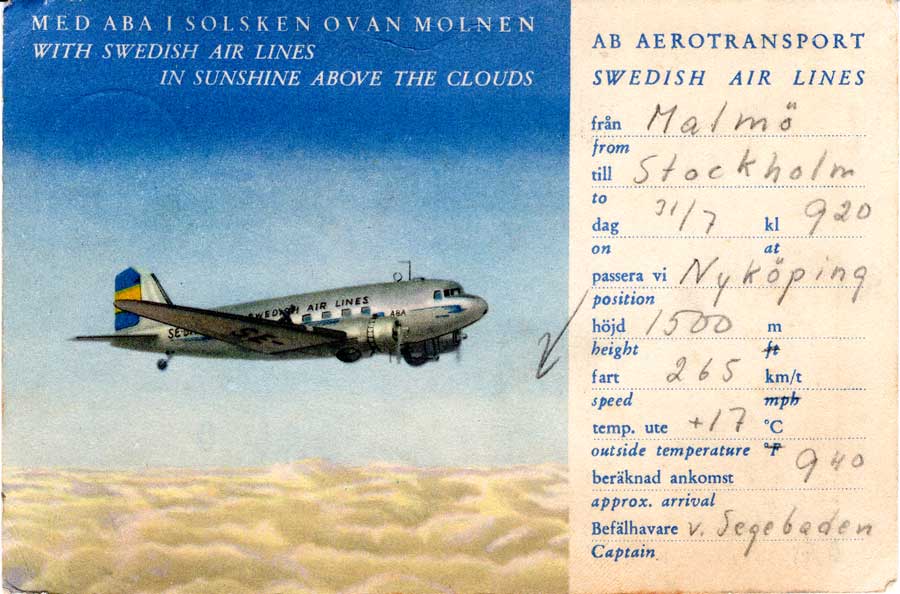 MED ABA I SOLSKEN OVAN MOLNEN
WITH SWEDISH AIR LINES
IN SUNSHINE ABOVE THE CLOUDS
SWEDISH AIR LINES
ABA
AB AEROTRANSPORT
SWEDISH AIR LINES
från Malmö
from
till Stockholm
to
dag 31/7 kl 920
on at
passera vi Nyköping
position
höjd 1500 m
height ft
fart 265 km/t
speed mph
temp. ute +17 °C
outside temperature °F
beräknad ankomst 940
approx. arrival
Befälhavare v. Segebaden
Captain